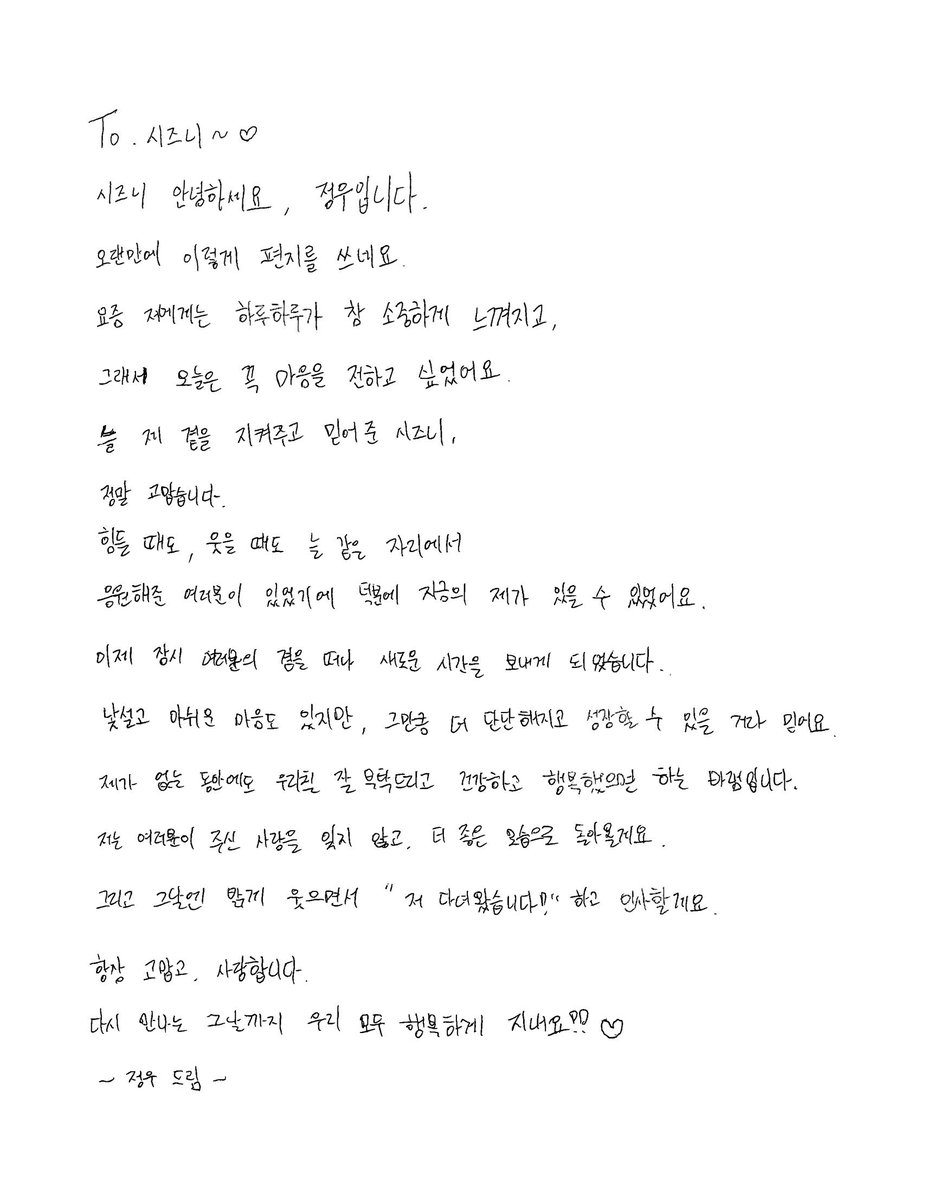 To. 시즈니 ~ ♡
시즈니 안녕하세요, 정우입니다.
오랜만에 이렇게 편지를 쓰네요.
요즘 저에게는 하루하루가 참 소중하게 느껴지고,
그래서 오늘은 꼭 마음을 전하고 싶었어요.
늘 제 곁을 지켜주고 믿어준 시즈니,
정말 고맙습니다.
힘들 때도, 웃을 때도 늘 같은 자리에서
응원해준 여러분이 있었기에 덕분에 지금의 제가 있을 수 있었어요.
이제 잠시 여러분의 곁을 떠나 새로운 시간을 보내게 되었습니다.
낯설고 아쉬운 마음도 있지만, 그만큼 더 단단해지고 성장할 수 있을 거라 믿어요.
제가 없는 동안에도 우리칠 잘 부탁드리고 건강하고 행복했으면 하는 바램입니다.
저는 여러분이 주신 사랑을 잊지 않고, 더 좋은 모습으로 돌아올게요.
그리고 그날엔 밝게 웃으면서 “저 다녀왔습니다!” 하고 인사할게요.
항상 고맙고, 사랑합니다.
다시 만나는 그날까지 우리 모두 행복하게 지내요!! ♡
~ 정우 드림 ~